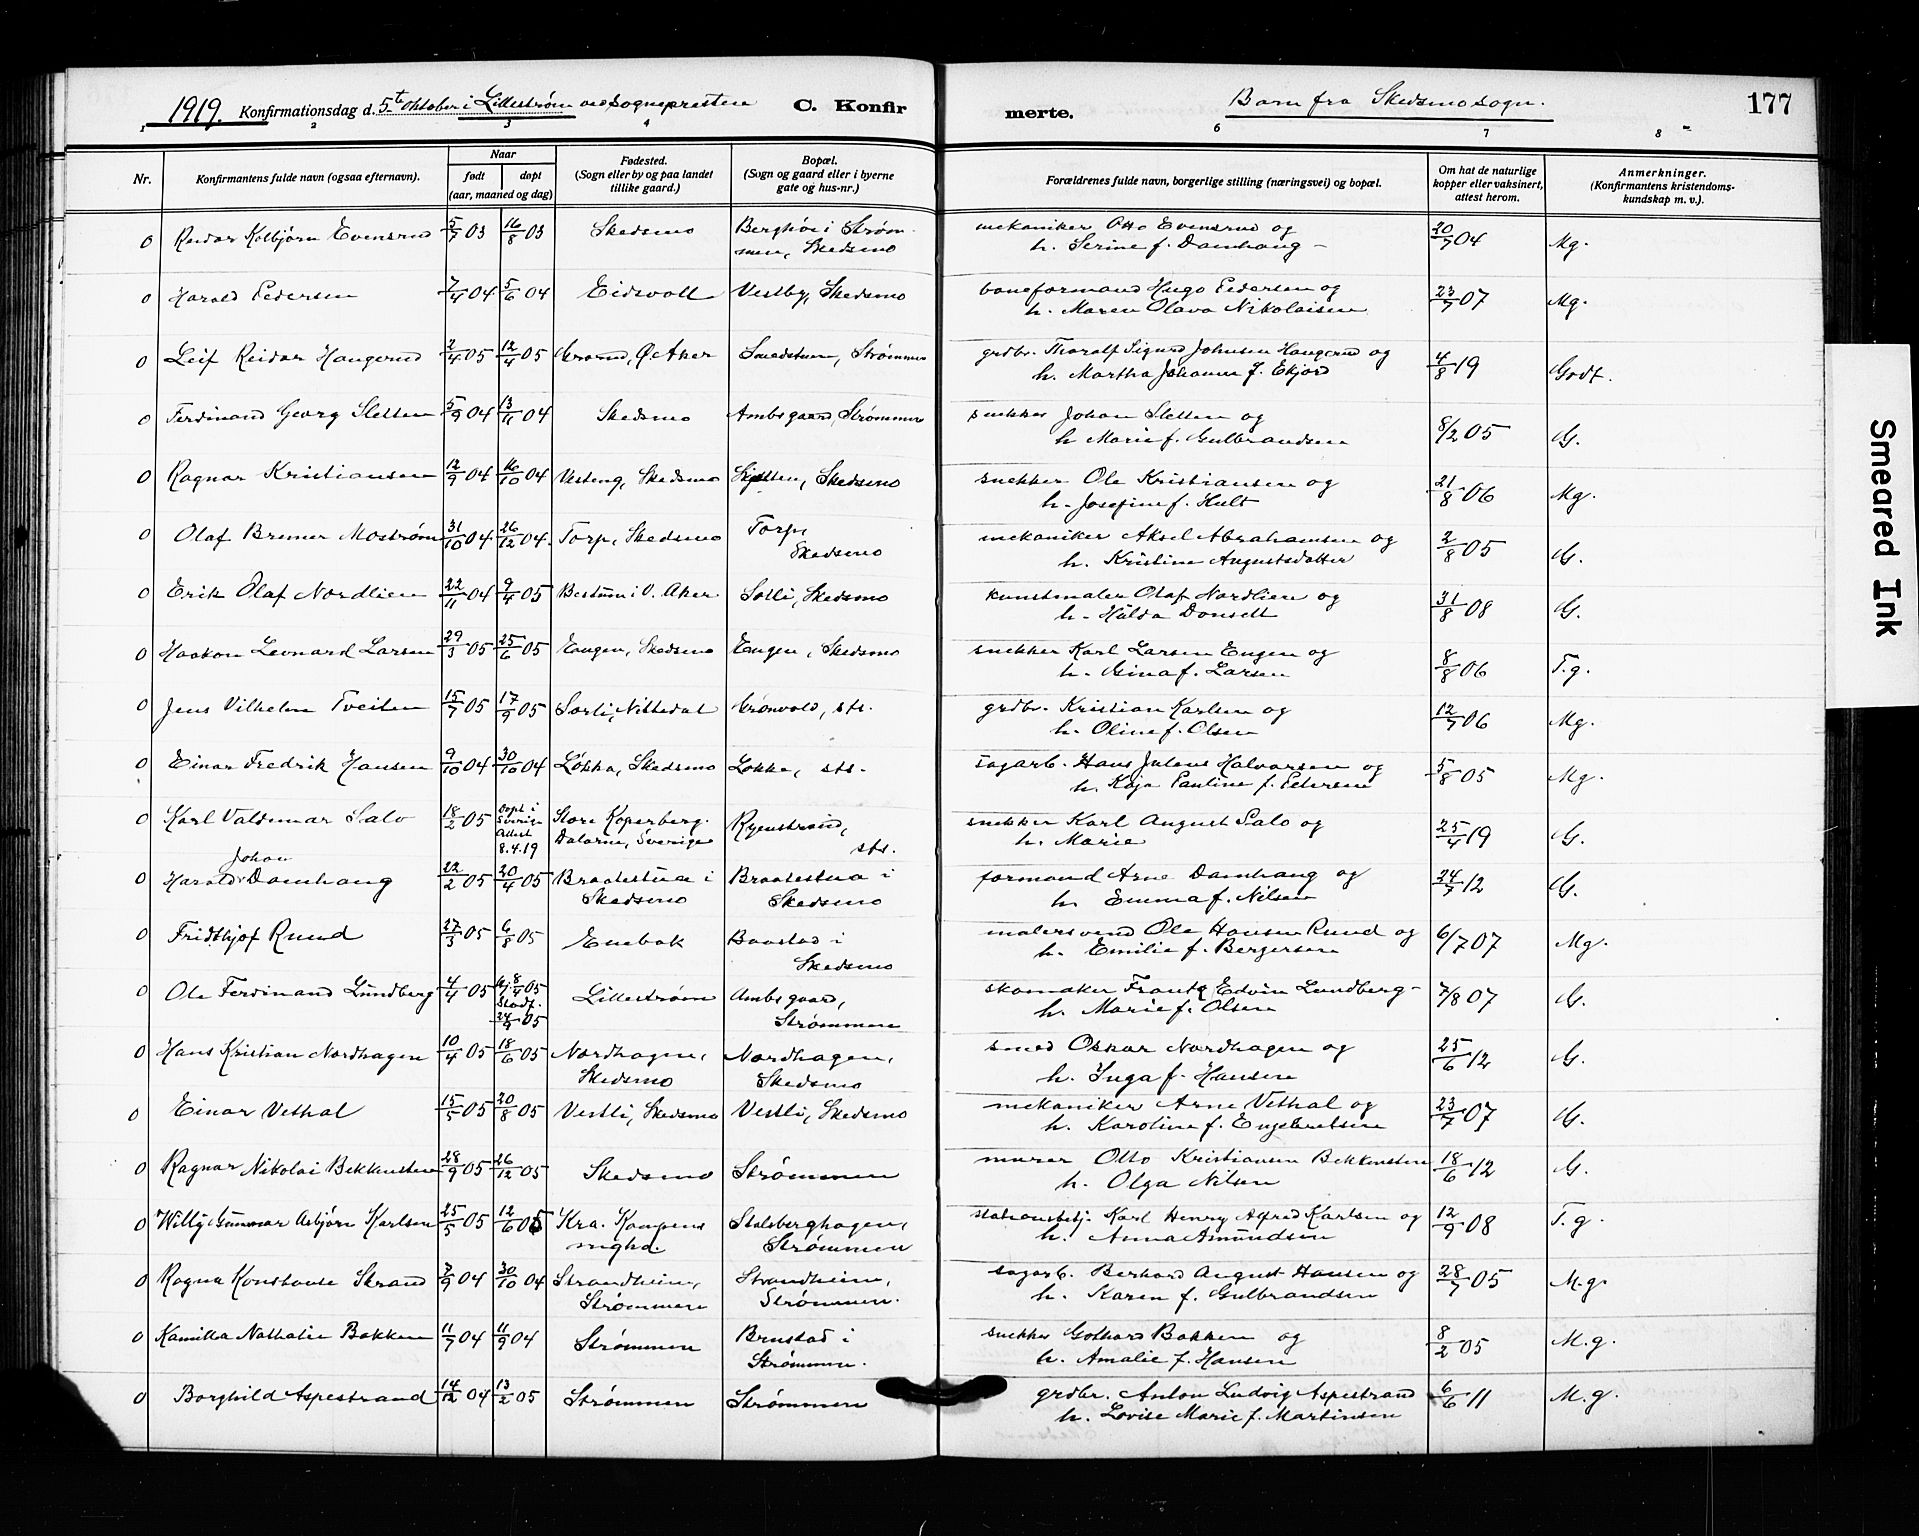 1919. Konfirmationsdag d. 5te oktober i Lillestrøm ved sognepresten C. Konfir
merte. Barn fra Skedsmo sogn. 177
1 2 3 4 6 7 8
Nr. Konfirmantens fulde navn (ogsaa efternavn). Naar født døpt (aar, maaned og dag) Fødested. (Sogn eller by og paa landet tillike gaard.) Bopæl. (Sogn og gaard eller i byerne gate og hus-nr.) Forældrenes fulde navn, borgerlige stilling (næringsvei) og bopæl. Om hat de naturlige kopper eller vaksinert, attest herom. Anmerkninger. (Konfirmantens kristendomskundskap m. v.).
0 Reidar Kolbjørn Evensrud 5/7 03 16/8 03 Skedsmo Berghøi i Strøm- mekaniker Otto Evensrud og 20/7 04 Mg.
men, Skedsmo h. Serine f. Damhaug -
0 Harald Pedersen 7/4 04 5/6 04 Eidsvoll Vestby, Skedsmo baneformand Hugo Pedersen og 23/7 07 Mg.
h. Maren Olava Nikolaisen
0 Leif Reidar Haugerud 2/4 05 12/4 05 Ø. Aker Smedstuen, Strømmen grdbr. Thoralf Sigurd Johnsen Haugerud og 4/8 19 Godt.
h. Martha Johanne f. Ekjord
0 Ferdinand Georg Sletten 5/9 04 13/11 04 Skedsmo Ambsgaard, Strømmen snekker Johan Sletten og 8/2 05 G.
h Marie f. Gulbrandsen
0 Ragnar Kristiansen 12/9 04 16/10 04 Vesteng, Skedsmo Skjetten, Skedsmo snekker Ole Kristiansen og 21/8 06 Mg.
h. Josefine f. Hult
0 Olaf Bremer Mostrøm 31/10 04 26/12 04. Torp, Skedsmo Torp, mekaniker Aksel Abrahamsen og 2/8 05 G.
Skedsmo h. Kristine Augustsdatter
0 Erik Olaf Nordlien 22/11 04 9/4 05 Bestum i V. Aker Solli, Skedsmo kunstmaler Olaf Nordlien og 31/8 08 G.
h. Hulda Donsell
0 Haakon Leonard Larsen 29/3 05 25/6 05 Engen, Skedsmo Engen, Skedsmo snekker Karl Larsen Engen og 8/8 06 T.g.
h. Gina f. Larsen
0 Jens Vilhelm Tveiten 15/7 05 17/9 05 Sørli, Nittedal Grønvold, sts. grdbr. Kristian Karlsen og 12/7 06 Mg.
h. Oline f. Olsen
0 Einar Fredrik Hansen 9/10 04 30/10 04 Løkka, Skedsmo Løkka, sts. sagarb. Hans Julius Halvorsen og 5/8 05 Mg.
h. Kaja Pauline f. Pedersen
0 Karl Valdemar Salo 18/2 05 Døpt i Sverige Attest 8.4.19 Store Koperberg. Dalarne, Sverige Ryenstrand, sts. snekker Karl August Salo og 25/4 19 G.
h. Marie
0 Harald Johan Damhaug 22/2 05 20/4 05 Braatestua i Braatestua i formand Arne Damhaug og 24/7 12 G.
Skedsmo Skedsmo h. Emma f. Nilsen
0 Fridthjof Ruud 27/3 05 6/8 05 Enebak Baastad i malersvend Ole Hansen Ruud og 6/7 07 Mg.
Skedsmo h. Emilie f. Bergersen
0 Ole Ferdinand Lundberg 4/4 05 Hj. 8/4 05 Stadf. 24/4 05 Lillestrøm Ambsgaard, skomaker Frantz Edvin Lundberg - 7/8 07 G.
Strømmen h. Marie f. Olsen
0 Hans Kristian Nordhagen 10/4 05 18/6 05 Nordhagen, Nordhagen, smed Oskar Nordhagen og 25/6 12 G.
Skedsmo Skedsmo h. Inga f. Hansen
0 Einar Vethal 15/5 05 20/8 05 Vestli, Skedsmo Vestli, Skedsmo mekaniker Arne Vethal og 23/7 07 G.
h. Karoline f. Engebretsen
0 Ragnar Nikolai Bekkensten 28/9 05 26/12 05 Skedsmo Strømmen murer Otto Kristiansen Bekkensten 18/6 12 G.
h. Olga Nilsen
0 Willy Gunnar Asbjørn Karlsen 25/5 05 12/6 05 Kra. Kampens Stalsberghagen, stationsbetj. Karl Henry Alfred Karlsen og 12/9 08 T.g.
mghd. Strømmen h. Anna Amundsen
0 Ragna Konstanse Strand 7/9 04 30/10 04 Strandheim, Strandheim, sagarb. Berhard August Hansen og 28/7 05 M.g.
Strømmen Strømmen. h. Karen f. Gulbrandsen
0 Kamilla Nathalie Bakken 11/7 04 11/9 04 Strømmen Brustad i snekker Gothard Bakken og 8/2 05 M.g.
Strømmen. h. Amalie f. Hansen
0 Borghild Aspestrand 14/12 04 13/2 05 Strømmen Strømmen grdbr. Anton Ludvig Aspestrand 6/6 11 M.g.
h. Lovise Marie f. Martinsen
Smeared Ink